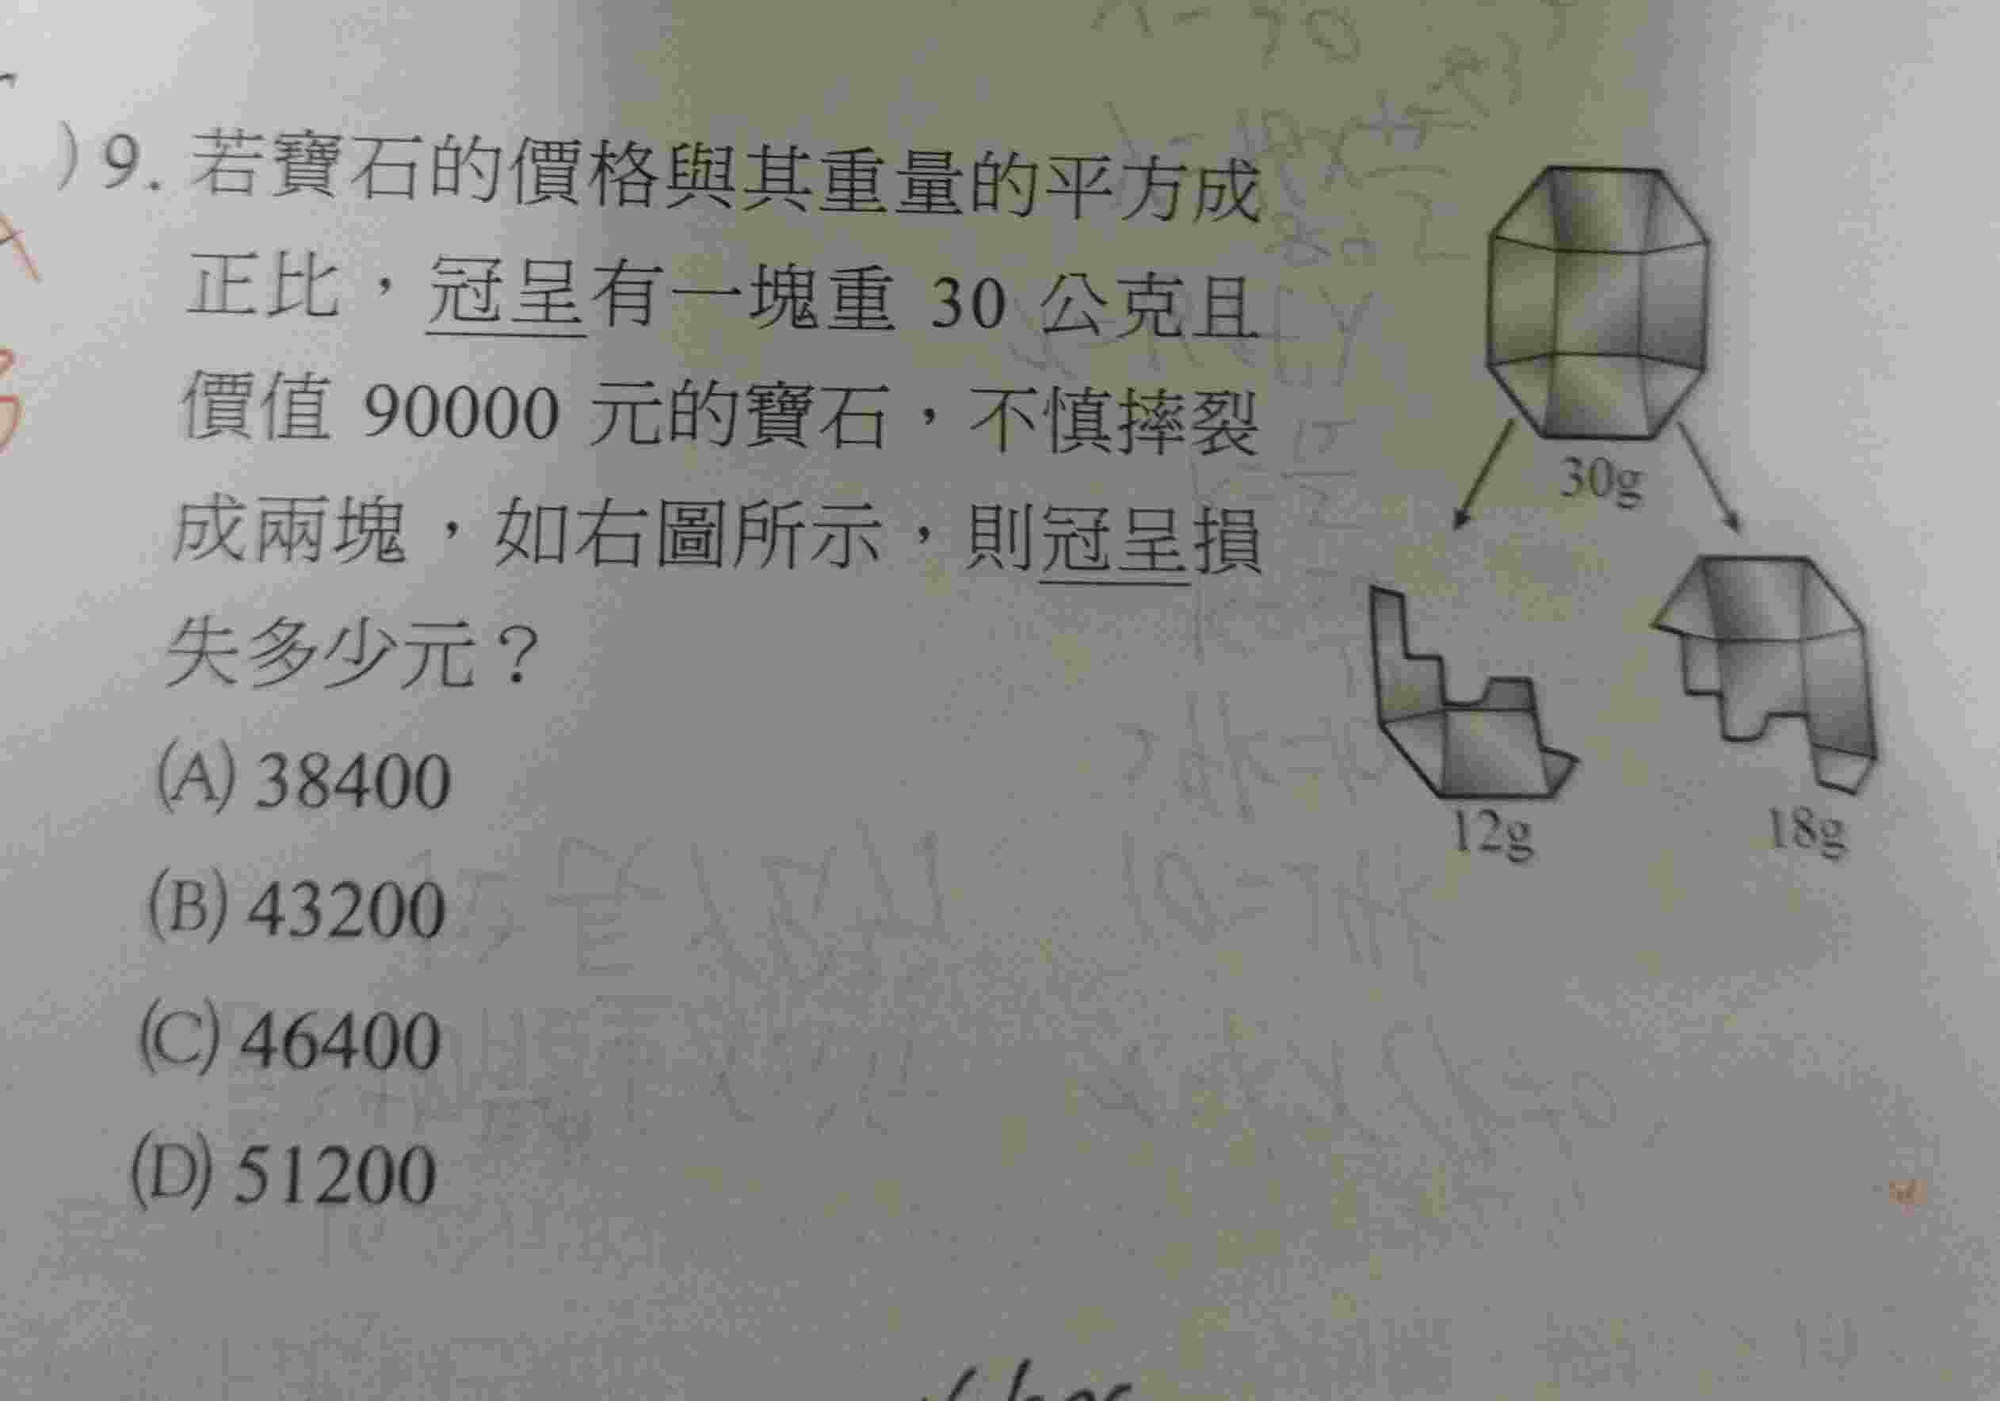 )9. 若寶石的價格與其重量的平方成
正比，冠呈有一塊重 30 公克且
價值 90000 元的寶石，不慎摔裂
成兩塊，如右圖所示，則冠呈損
失多少元？
(A) 38400
(B) 43200
(C) 46400
(D) 51200
30g
12g
18g